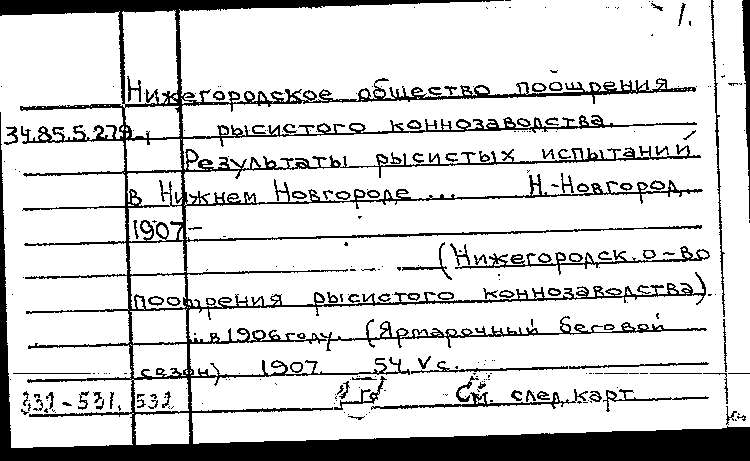 1.
Нижегородское общество поощрения
34.85.5.279-, рысистого коннозаводства.
Результаты рысистых испытаний
в Нижнем Новгороде ... Н.-Новгород,
1907-
(Нижегородск. о-во
поощрения рысистого коннозаводства)
... в 1906 году. (Ярмарочный беговой
сезон). 1907. 54, V с.
332-531, 532 См. след. карт.